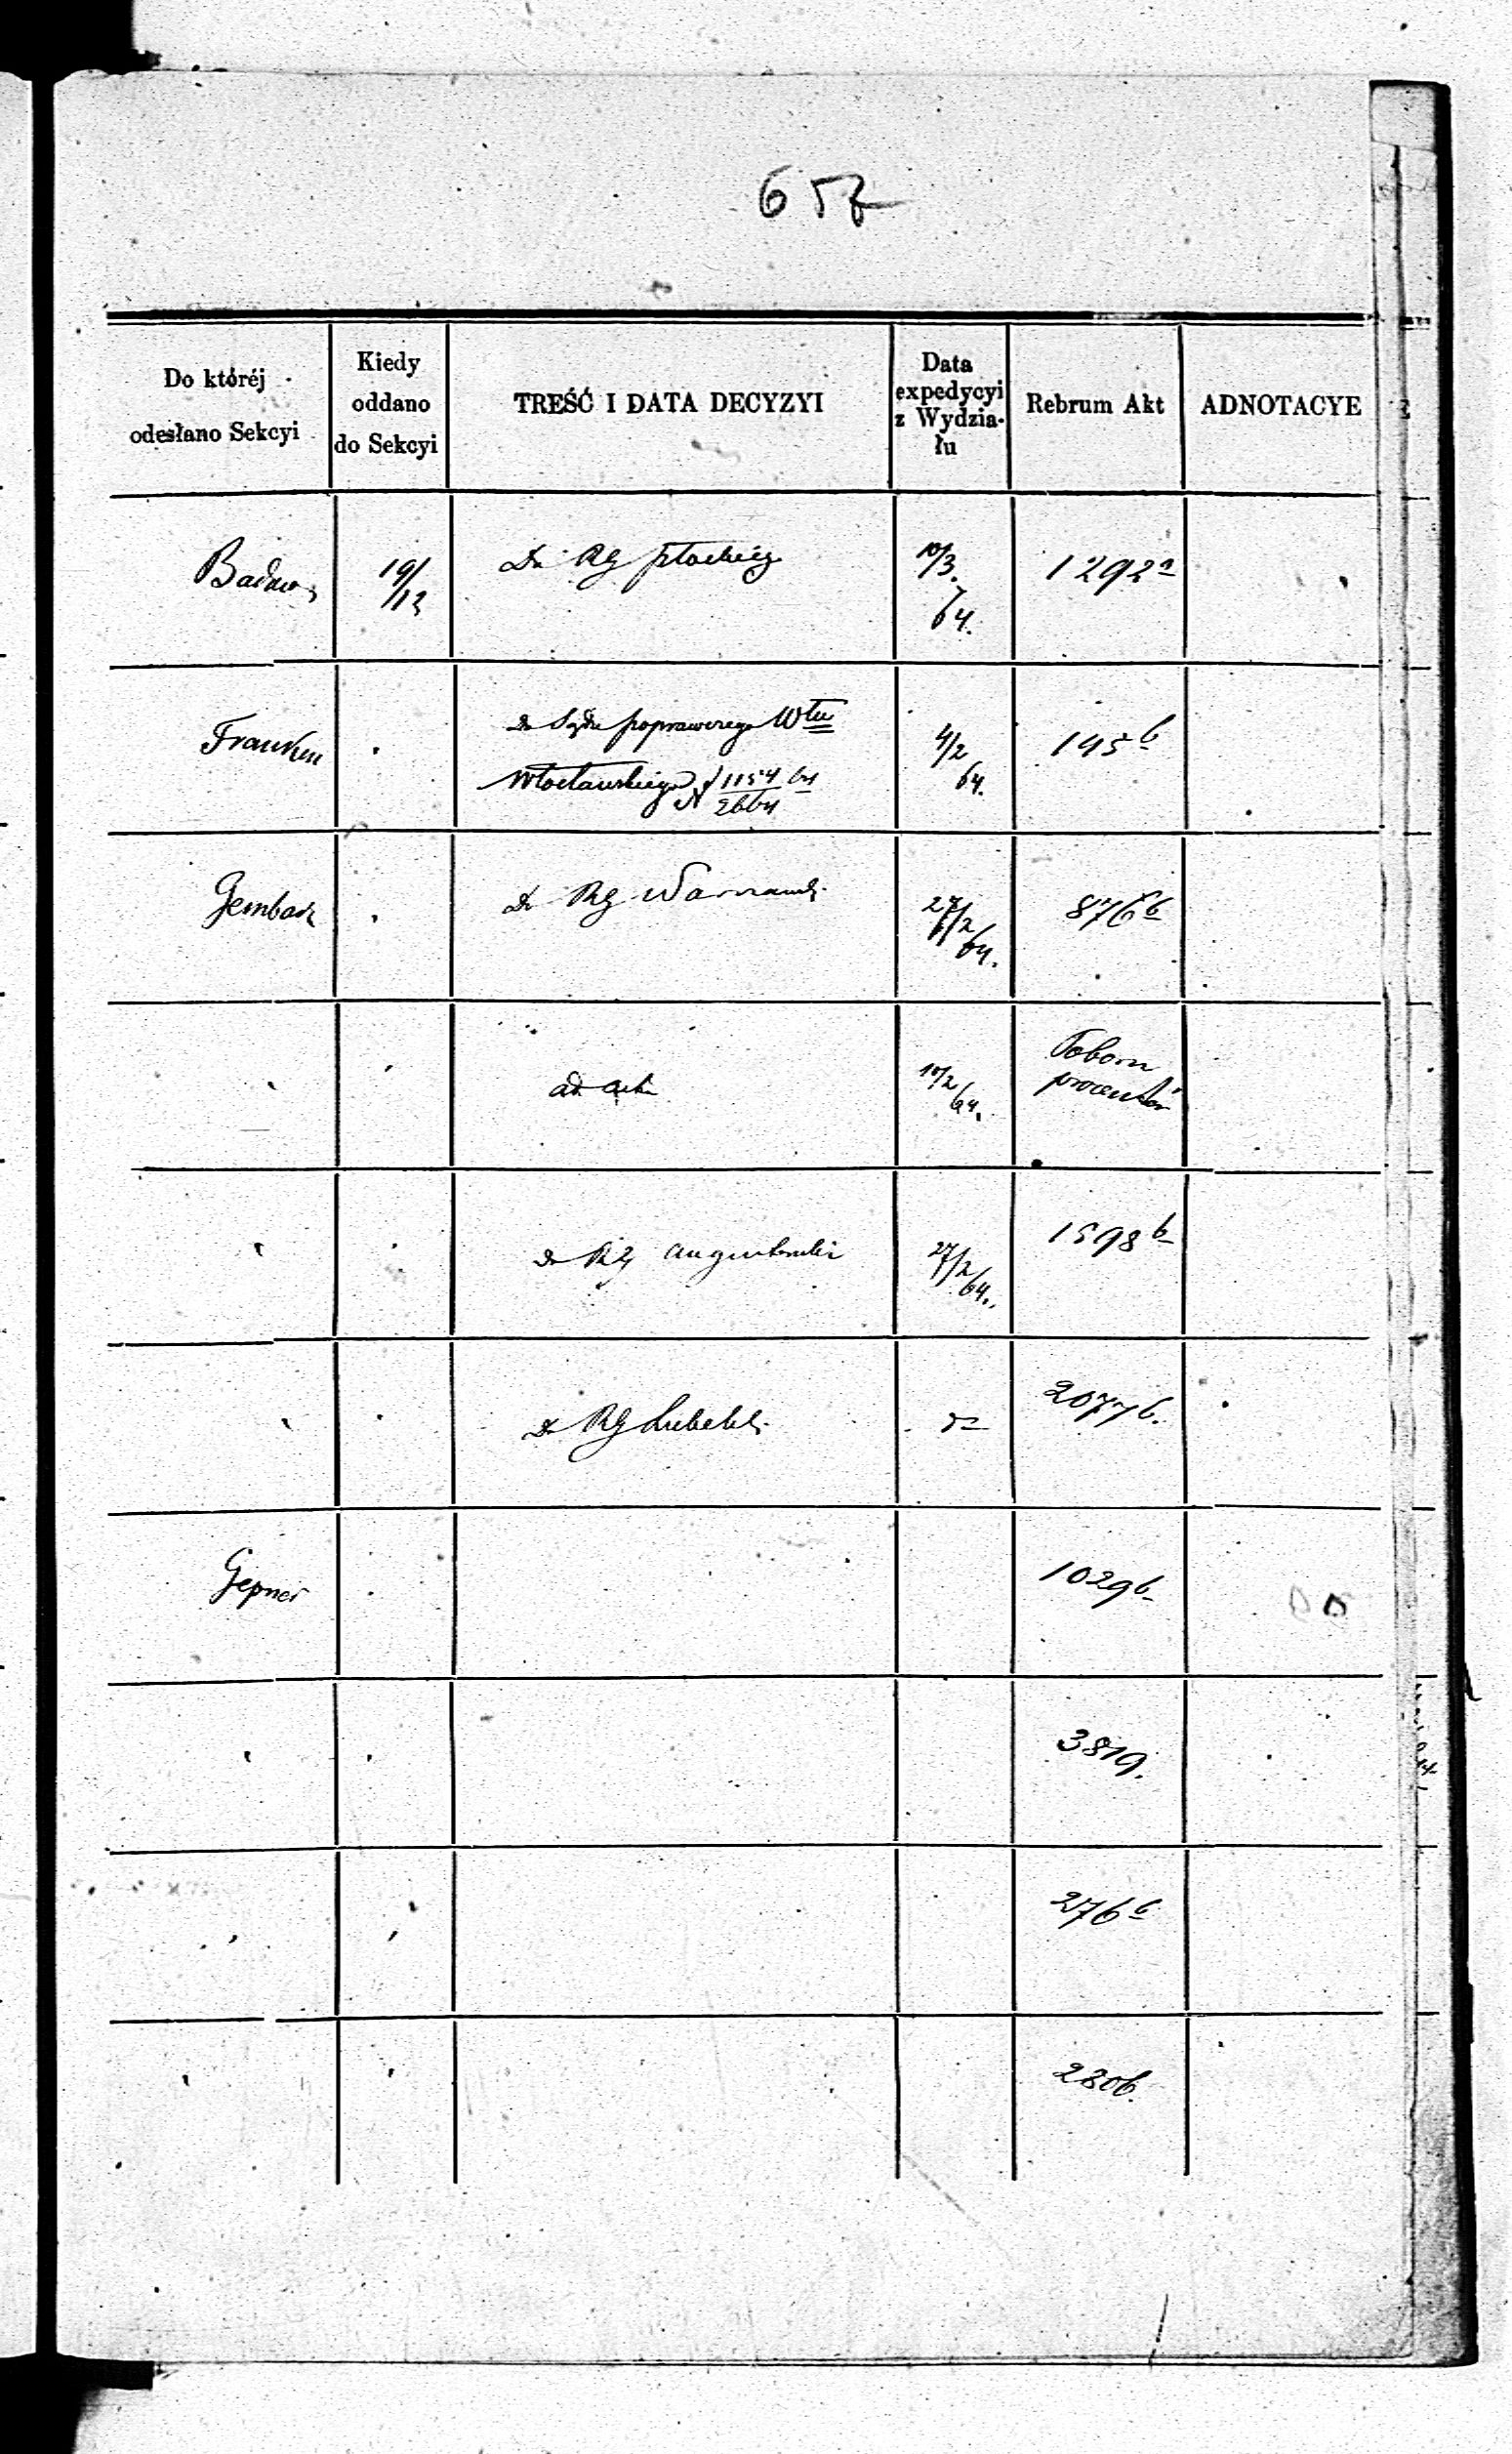 657
Do któréj odesłano Sekcyi
Kiedy oddano do Sekcyi
TREŚĆ I DATA DECYZYI
Data expedycyi z Wydzia-łu
Rebrum Akt
ADNOTACYE
19/12
Do RG Płockieg
10/3 64.
1292a
do Sądu poprawczego Wtu
Włocławskiego N 1154/2664 64
4/2 64.
145b
Do RG Warszawsk.
27/2 64.
876b
ad acta
10/2 64.
Poboru
procentów
do RG Augustowski
27/2 64.
1598b
Do RG Lubelsk.
do
2077b.
Gepner
1029b
3819.
276b
2806.